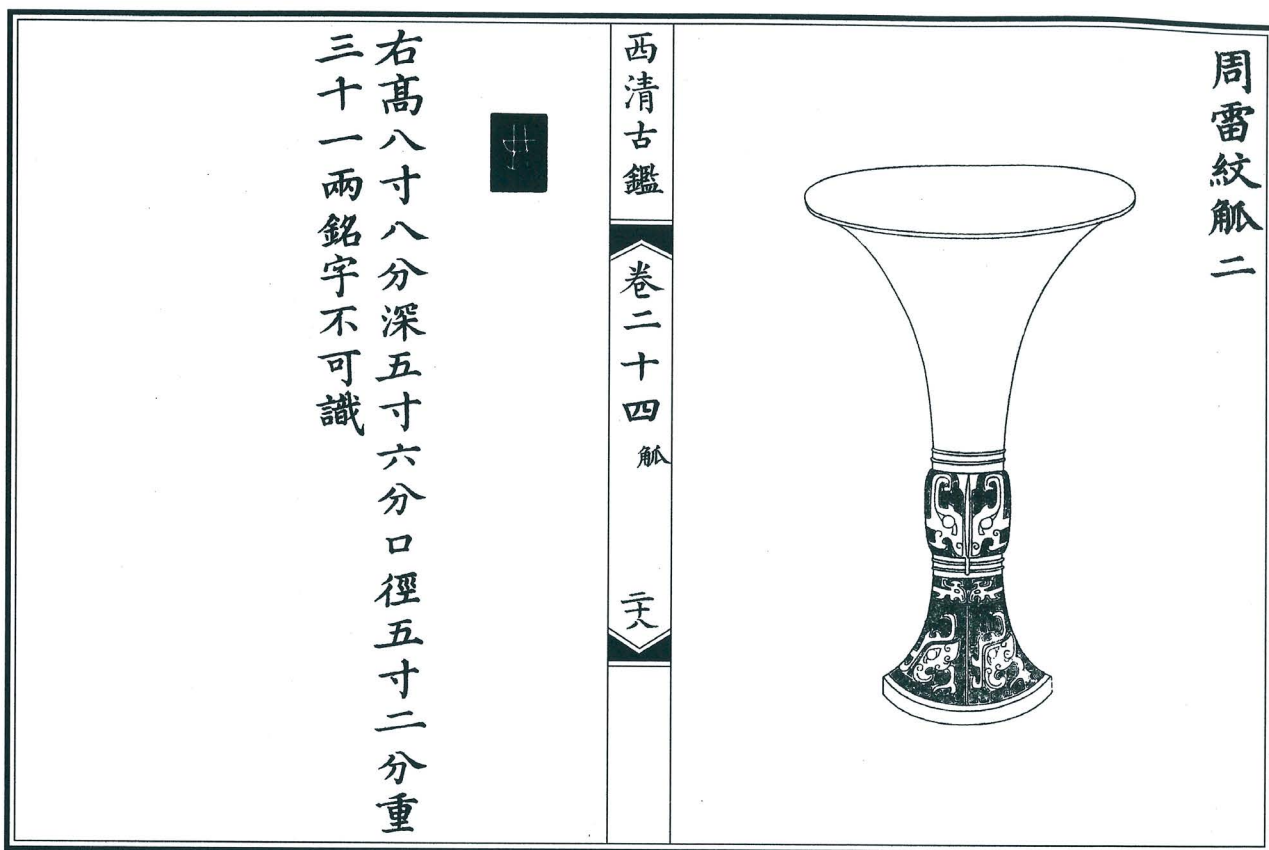 周雷紋觚二
西清古鑑
卷二十四 觚
二十八
右髙八寸八分深五寸六分口徑五寸二分重
三十一兩銘字不可識